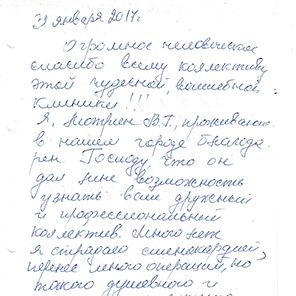 31 января 2017г.
Огромное человеческое
спасибо всему коллективу
этой чудесной волшебной
клиники!!!
Я, В.Г., проживаю
в нашем городе благода
рен Господу, что он
дал мне возможность
узнать ваш дружный
и профессиональный
коллектив. Много лет
я страдаю стенокардией,
перенес много операций, но
такого душевного и